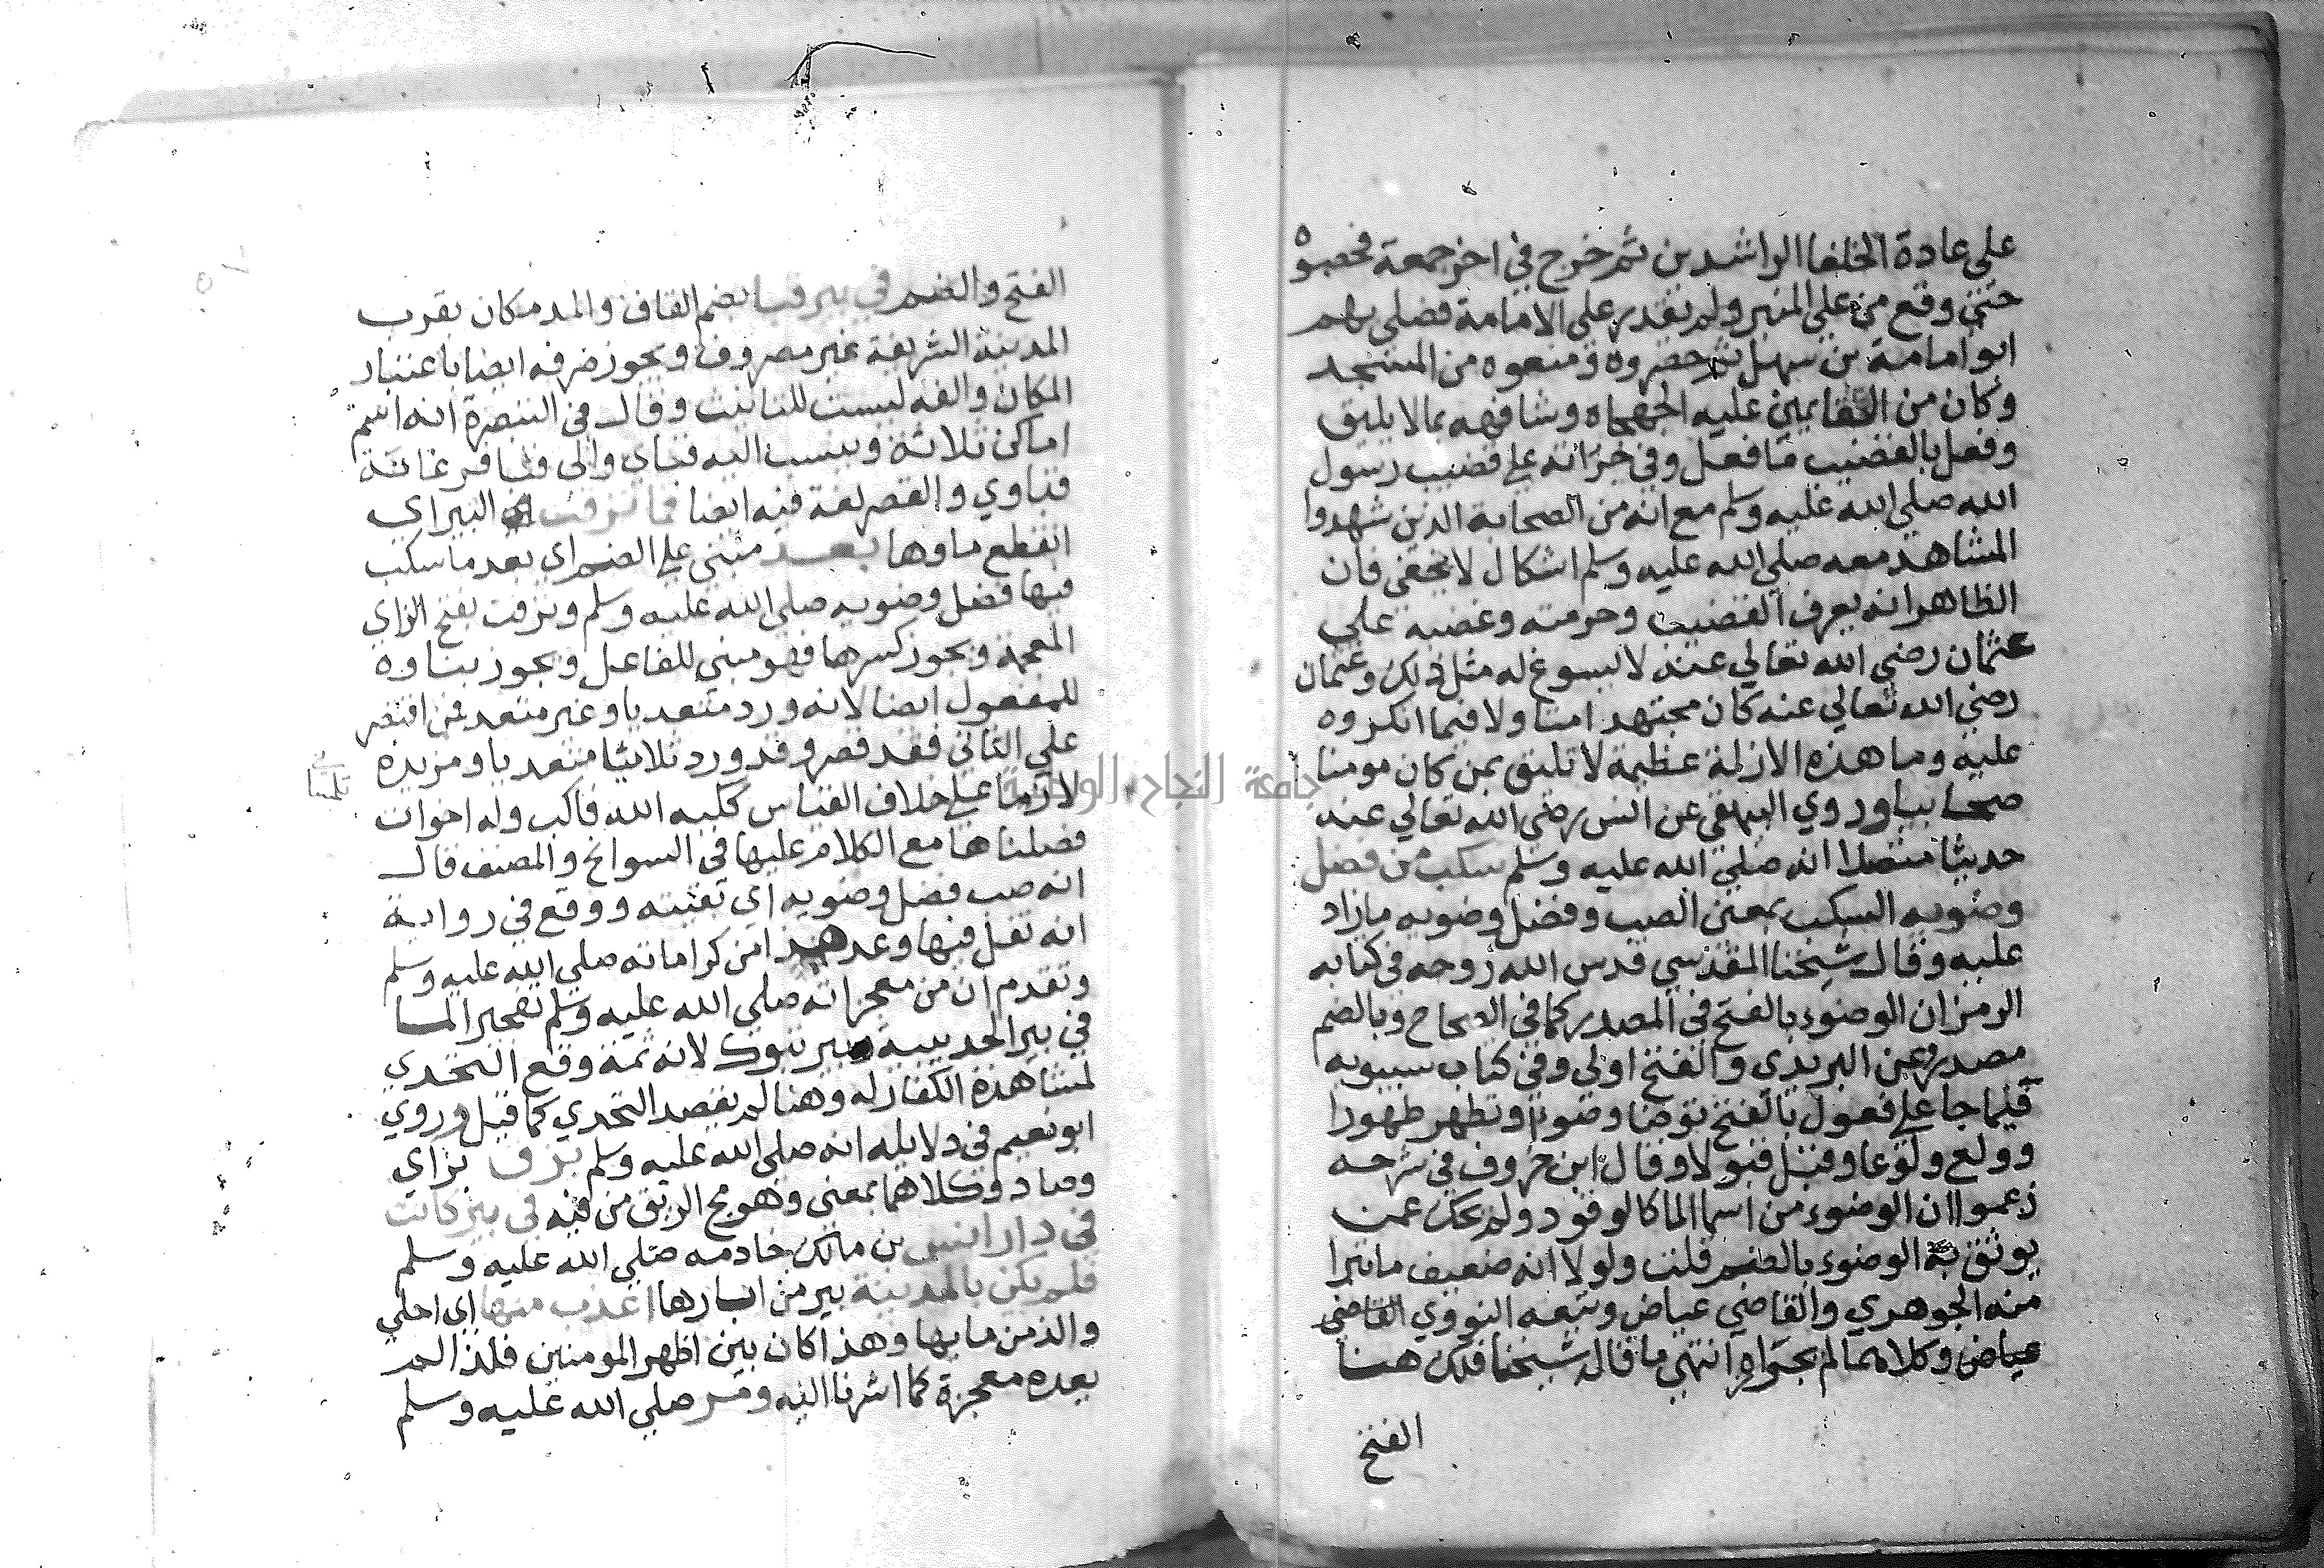 على عادة الخلفا الراشدين ثم خرج في اخر جمعة فحصبوه
حتى وقع من على المنبر ولم يقدر على الامامة فصلى بهم
ابو امامة بن سهيل ثم حصروه ومنعوه من المسجد
وكان من القايمين عليه الجهجاه وشافهه بما لا يليق
وفعل بالقضيب ما فعل وفي خزانه على قضيب رسول
الله صلى الله عليه وسلم مع انه من الصحابة الذين شهدوا
المشاهد معه صلى الله عليه وسلم اشكال لا يخفى فان
الظاهر انه يعرف القضيب وحرمته وغضبه على
عثمان رضي الله تعالى عنه لا يسوغ له مثل ذلك وعثمان
رضي الله تعالى عنه كان مجتهدا متاولا فيما انكروه
عليه وما هذه الا زلة عظيمة لا تليق بمن كان مومنا
صحابيا وروي البيهقي عن انس رضي الله تعالى عنه
حديثا متصلا انه صلى الله عليه وسلم سكب من فضل
وضويه السكب بمعنى الصب وفضل وضويه ما زاد
عليه وقال شيخنا المقدسي قدس الله روحه في كتابه
الرمز ان الوضوء بالفتح في المصدر كما في الصحاح وبالضم
مصدر وعن اليزيدي والفتح اولى وفي كتاب سيبويه
فيما جا على فعول بالفتح توضا وضوءا وتطهر طهورا
وولع ولوعا وقبل قبولا وقال ابن خروف في شرحه
زعموا ان الوضوء من اسما الما كالوقود ولم يحك عمن
يوثق به الوضوء بالضم قلت ولولا انه ضعيف ما تبرا
منه الجوهري والقاضي عياض وتبعه النووي القاضي
عياض وكلاهما لم انتهى ما قاله شيخنا فلك هنا
الفتح
الفتح والضم في بير قبا بضم القاف والمد مكان بقرب
المدينة الشريفة غير مصروف ويجوز صرفه ايضا باعتبار
المكان والفه ليست للتانيث وقال في التبصرة انه اسم
اماكن ثلاثة وينسب اليه قباي والى قبا فرغانة
قباوي والقصر لغة فيه ايضا فما نزفت اي البير اي
انقطع ماوها بعد مبني على الضم اي بعد ما سكب
فيها فضل وضويه صلى الله عليه وسلم ونزفت بفتح الزاي
المعجمة ويجوز كسرها فهو مبني للفاعل ويجوز بناوه
للمفعول ايضا لانه ورد متعديا وغير متعد فمن اقتصر
على الثاني فقد قصر وقد ورد ثلاثيا متعديا ومزيده
لازما على خلاف القياس ككبه الله فاكب وله اخوات
فصلناها مع الكلام عليها في السوانح والمصنف قال
انه صب فضل وضويه اي بقيته ووقع في رواية
انه تفل فيها وعد هذا من كراماته صلى الله عليه وسلم
وتقدم ان من معجزاته صلى الله عليه وسلم تفجير الما
في بير الحديبية وبير تبوك لانه ثمة وقع التحدي
لمشاهدة الكفار له وهنا لم يقصد التحدي كما قيل وروي
ابو نعيم في دلايله انه صلى الله عليه وسلم بزق بزاي
وصاد وكلاهما بمعنى وهو مج الريق من فيه في بير كانت
في دار انس بن مالك خادمه صلى الله عليه وسلم
فلم يكن بالمدينة بير من ابيارها اعذب منها اي احلى
والذ من مايها وهذا كان بين اظهر المومنين فلذا لم
يعده معجزة كما اشرنا اليه ومر صلى الله عليه وسلم
جامعة النجاح الوطنية